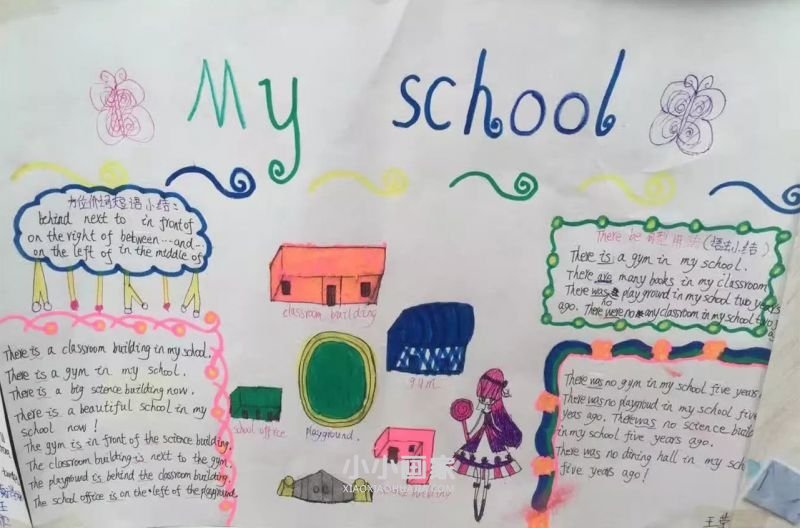 My school
方位介词短语小结：
behind next to in front of
on the right of between...and...
on the left of in the middle of
There is a classroom building in my school.
There is a gym in my school.
There is a big science building now.
There is a beautiful school in my
school now!
The gym is in front of the science building.
The classroom building is next to the gym.
The playground is behind the classroom building.
The school office is on the left of the playground.
classroom building
gym
school office
playground.
There be 句型用法(语法小结)
There is a gym in my school.
There are many books in my classroom
There was playground in my school two years
no
ago. There were no any classroom in my school two
ago.
There was no gym in my school five years
There was no playground in my school five
years ago. There was no science build
in my school five years ago.
There was no dining hall in my sch
five years ago!
小小画家
XIAOXIAOHUAJIA.COM